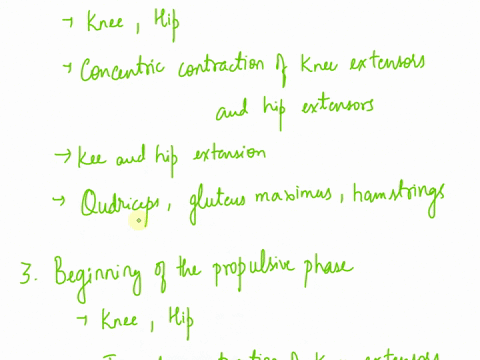 → Knee, Hip
→ Concentric contraction of Knee extensors
and hip extensors
→ Kee and hip extension
→ Qudriceps, gluteus maximus, hamstrings
3. Beginning of the propulsive phase
→ Knee, Hip
of Knee extensors